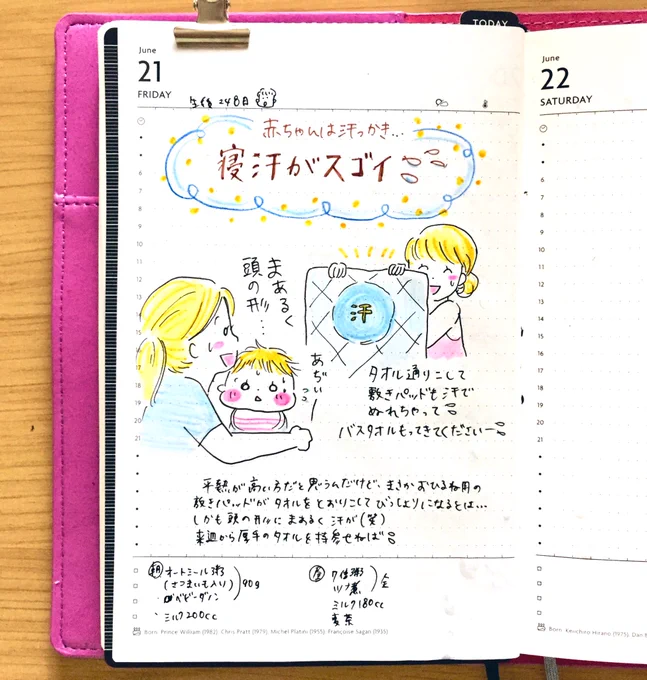 TODAY
June
21
FRIDAY
生後248日
赤ちゃんは汗っかき…
寝汗がスゴイ
まあるく
頭の形…
汗
あぢぃー
タオル通りこして
敷きパッドも汗で
ぬれちゃって
バスタオルもってきてくださいー
平熱が高い方だと思うんだけど、まさかおひるね用の
敷きパッドがタオルをとおりこしてびっしょりになるとは…
しかも頭の形にまあるく汗が(笑)
来週から厚手のタオルを持参せねば
朝 オートミール粥
(さつまいも入り)
90g
ベビーダノン
ミルク200cc
粥
ツナ煮
全
ミルク180cc
麦茶
Born: Prince William (1982), Chris Pratt (1979), Michel Platini (1955), Françoise Sagan (1935)
4
5
6
7
8
9
10
11
12
13
14
15
16
17
18
19
20
21
June
22
SATURDAY
Born: Keiichiro Hirano (1975), Dan B